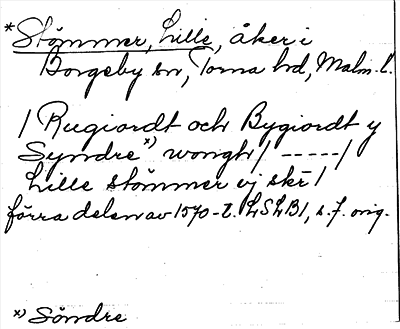 *Stömmer, Lille, åker i
Borgeby sn, Torna hd, Malm. l.
/ Rugiordt och Bygiordt y
Syndre x) wongh / ----- /
Lille stömmer ej skr /
förra delen av 1570-t. LSLB1, s. 7. orig.
x) Söndre